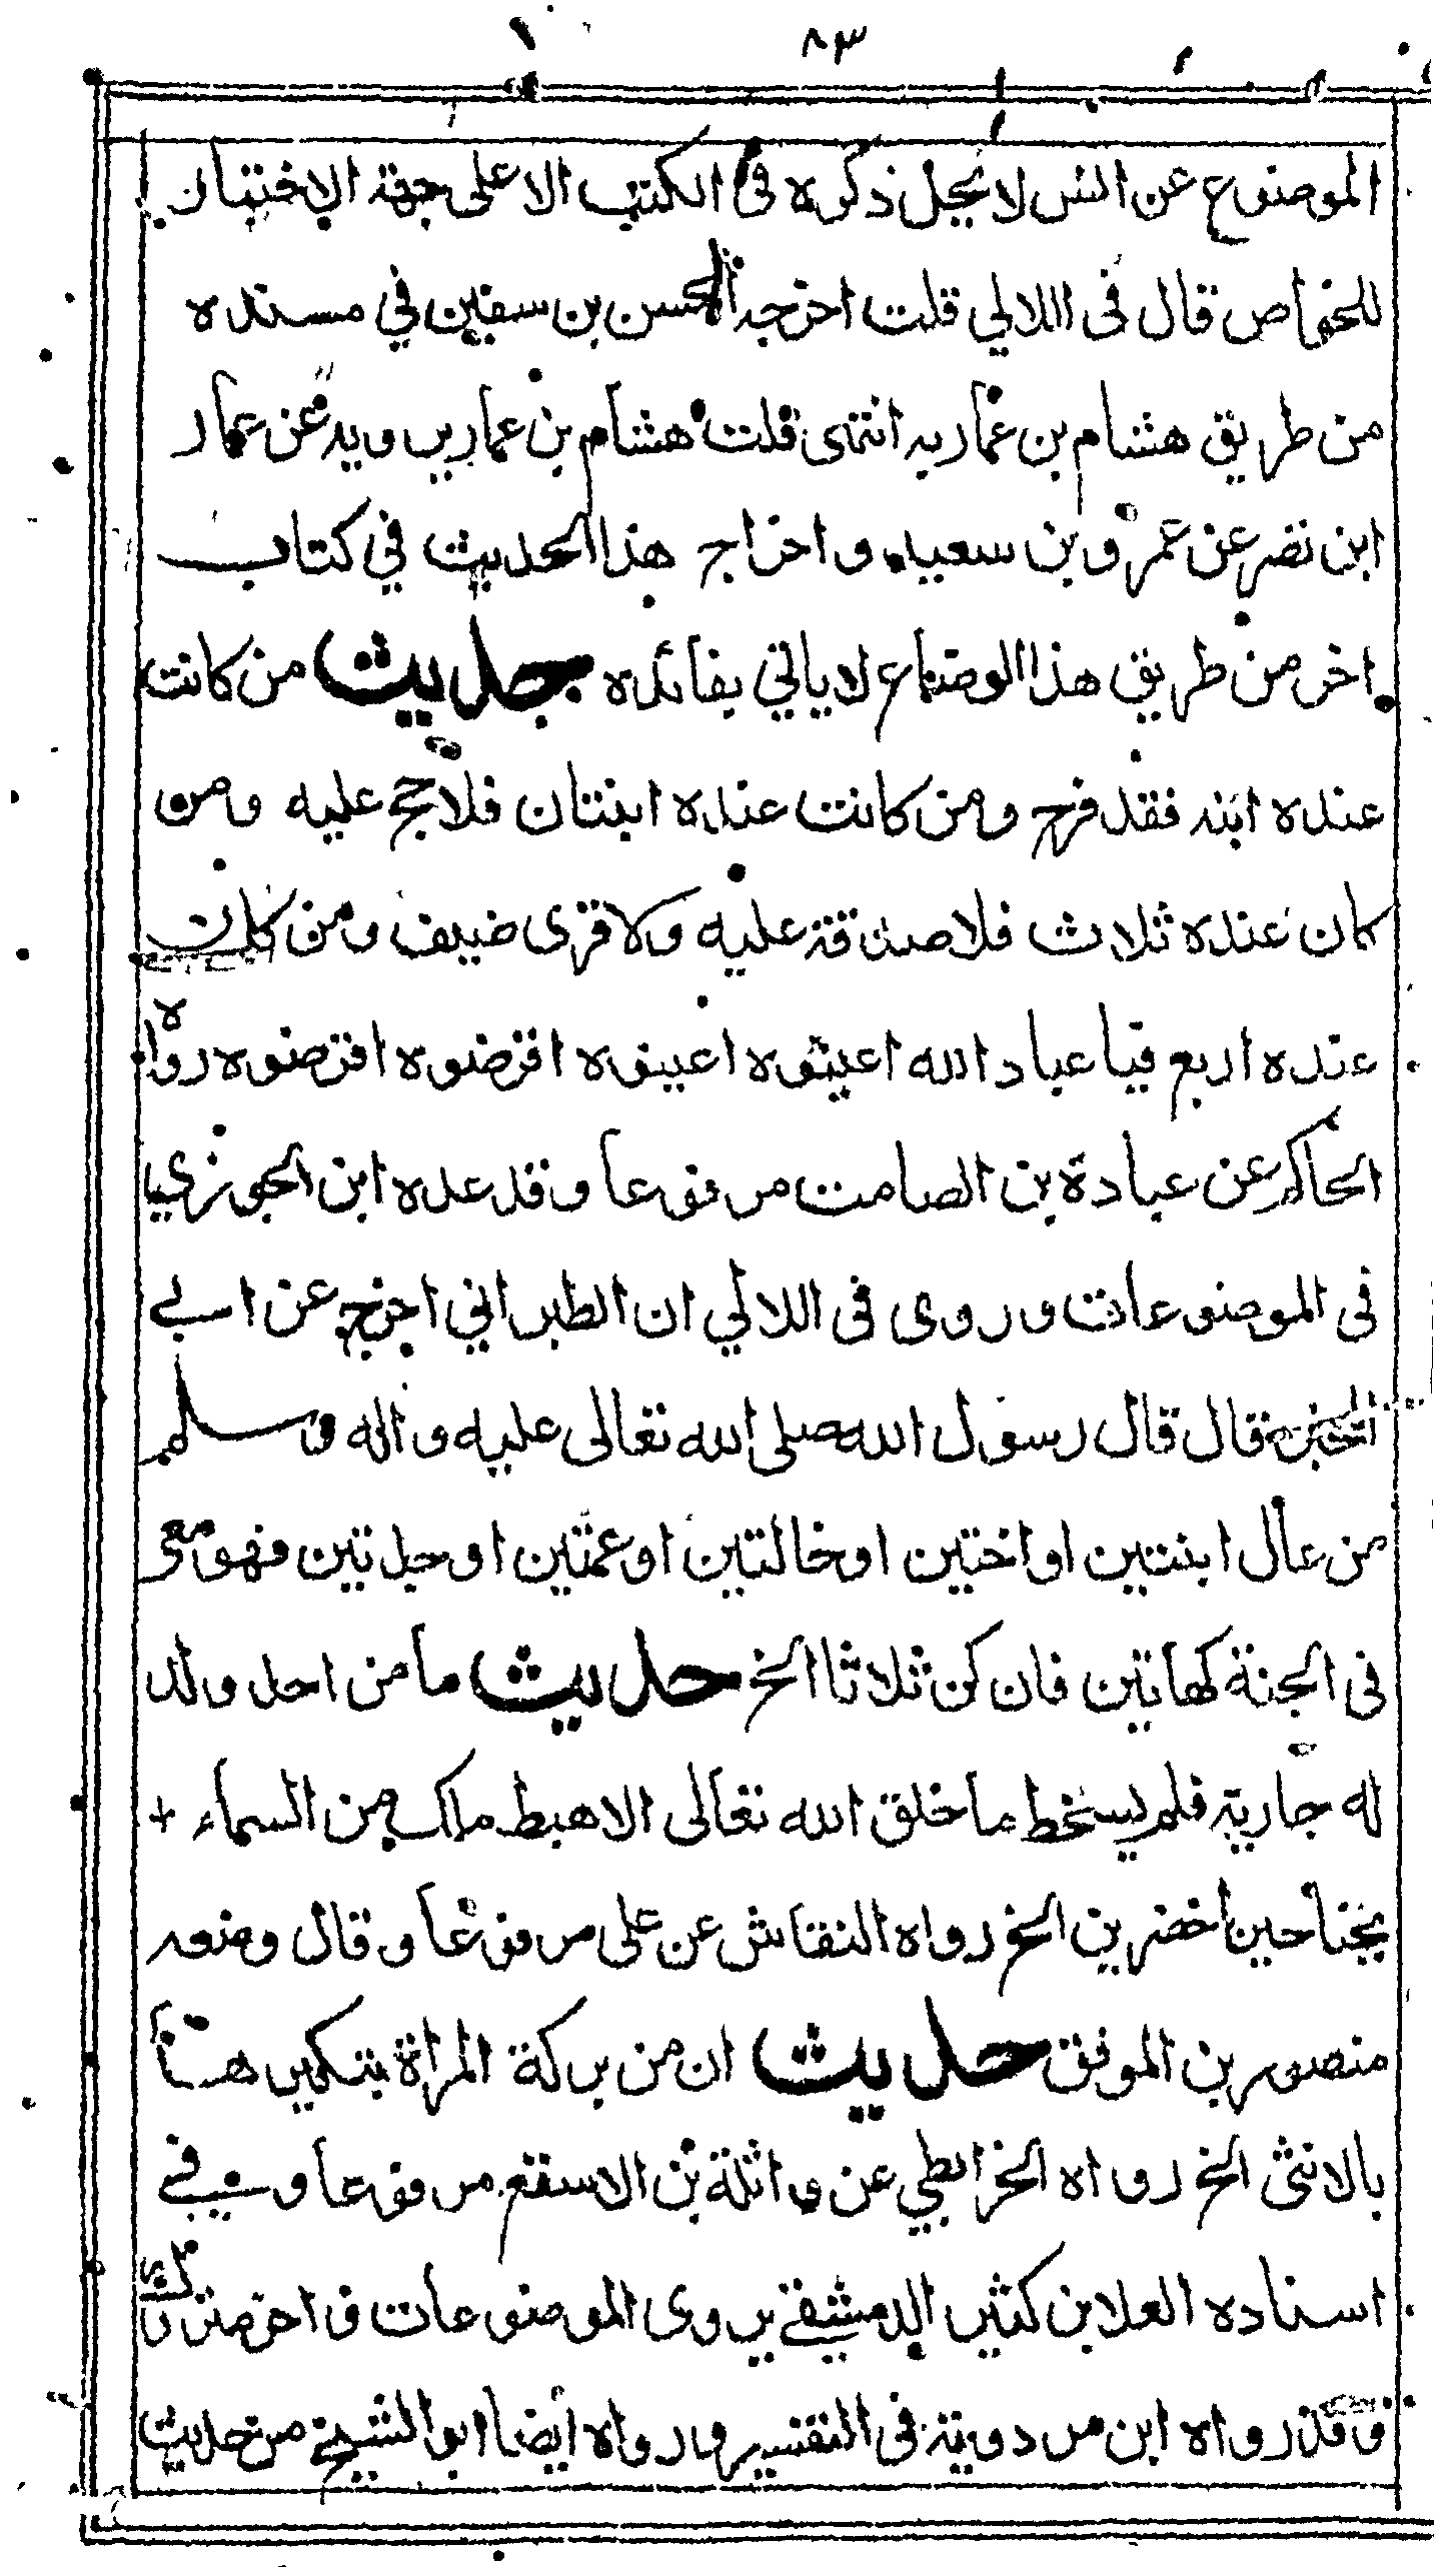 ٨٣
الموضوع عن انس لا يحل ذكره في الكتب الا على جهة الاختبار
للخواص قال في اللالي قلت اخرجه الحسن بن سفين في مسنده
من طريق هشام بن عمار به انتهى قلت هشام بن عمار يرويه عن عمار
ابن نصر عن عمرو بن سعيد واخراج هذا الحديث في كتاب
اخر من طريق هذا الوضاع لا ياتي بفائده حديث من كانت
عنده ابنة فقد فرح ومن كانت عنده ابنتان فلا حج عليه ومن
كان عنده ثلاث فلا صدقة عليه ولا قرى ضيف ومن كان
عنده اربع فيا عباد الله اعينوه اعينوه اقرضوه اقرضوه رواه
الحاكم عن عبادة بن الصامت مرفوعا وقد عده ابن الجوزي
في الموضوعات وروى في اللالي ان الطبراني اخرج عن ابي
المحبر قال قال رسول الله صلى الله تعالى عليه واله وسلم
من عال ابنتين او اختين او خالتين او عمتين او جدتين فهو معي
في الجنة كهاتين فان كن ثلاثا الخ حديث ما من احد ولد
له جارية فلم يسخط ما خلق الله تعالى الا هبط ملك من السماء +
بجناحين اخضرين الخ رواه النقاش عن على مرفوعا وقال وضعه
منصور بن الموفق حديث ان من بركة المراة بتكيرها
بالانثى الخ رواه الخرائطي عن واثلة بن الاسقع مرفوعا وفي
اسناده العلا بن كثير الدمشقي يروى الموضوعات
وقد رواه ابن مردويه في التفسير ورواه ايضا ابو الشيخ من حديث